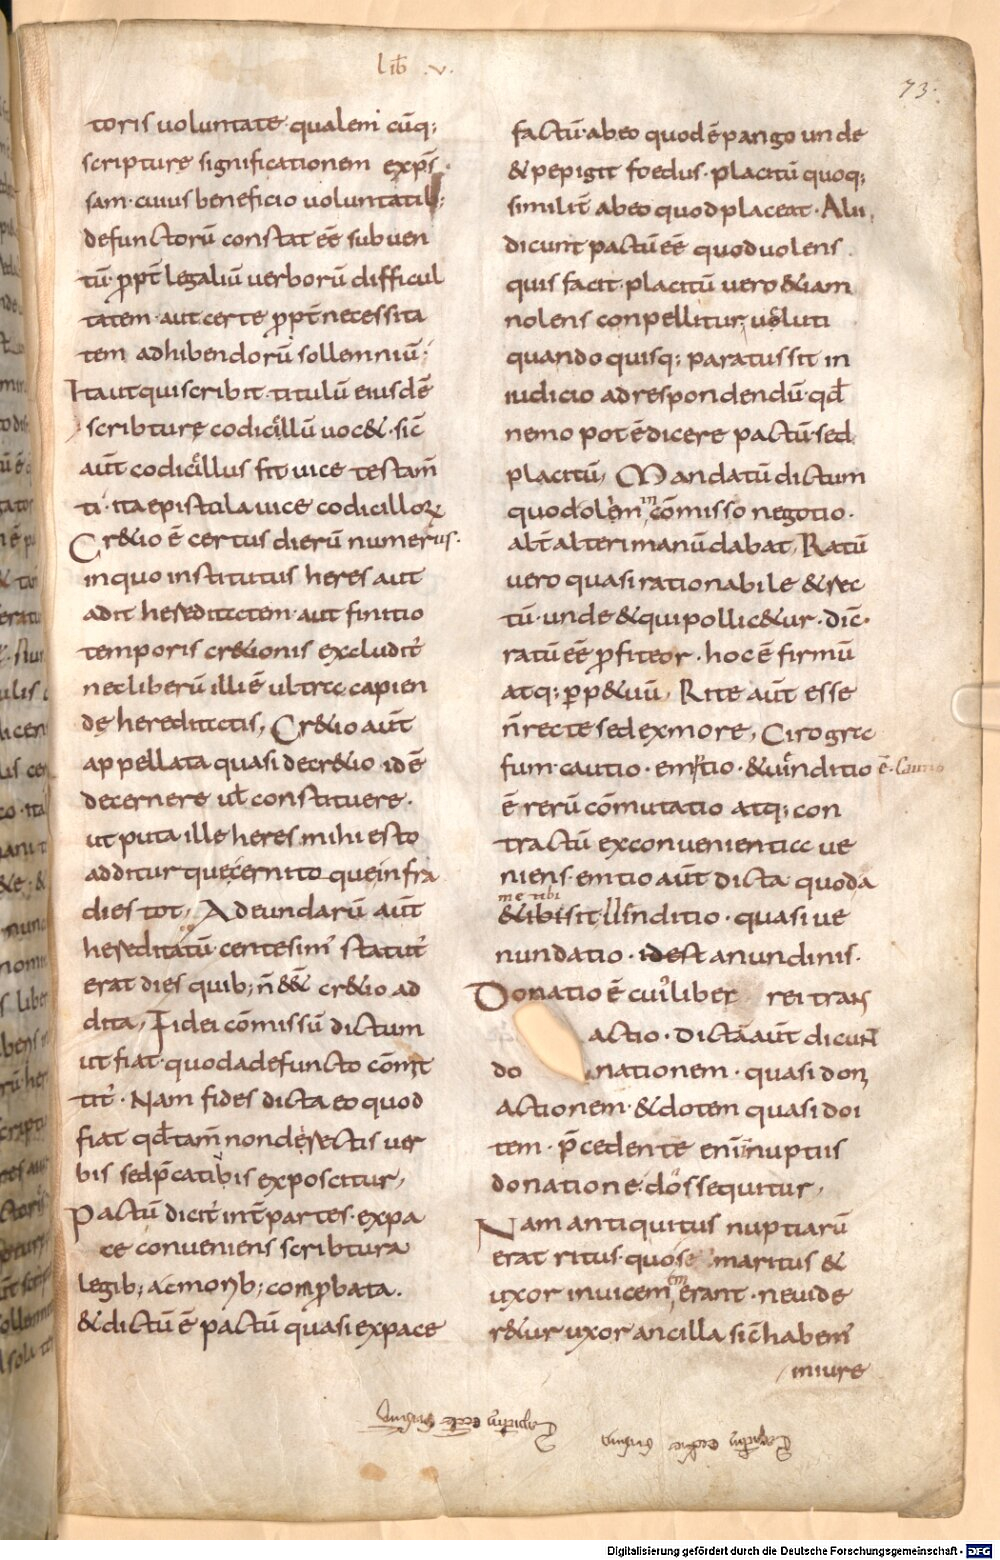 lib .v.
73.
toris uoluntate· qualem cūq;
scripture significationem exp̄s
sam· cuius beneficio uoluntatib;
defunctorū constat eē subuen
tū· ꝓpt̄ legaliū uerborū difficul
tatem· aut certe ꝓpt̄ necessita
tem adhibendorū sollemniū;
Ita ut qui scribit titulū eiusdē
scribturę codicillū uoc&· sic̄
aūt codicillus fit uice testam̄
ti· ita epistula uice codicilloꝝ
Cr&io ē certus dierū numerus·
in quo institutus heres aut
adit hereditatem· aut finitio
temporis cr&ionis excludit᷒
nec liberū illi ē ultra capien
dę hereditatis, Cr&io aūt
appellata quasi decr&io id ē
decernere uł constituere·
ut puta ille heres mihi esto
additur que cernito que infra
dies tot, Adeundarū aūt
hereditatū centesim᷒ statut᷒
erat dies quib; n̄ e&̄ cr&io ad
dita, Fidei cōmissū dictum
ut fiat· quod a defuncto cōmt
tit᷒· Nam fides dicta eo quod
fiat qd̄ tam̄ non derectis uer
bis sed p̄catibis exposcitur,
Pactū dicit᷒ int̄ partes· ex pa
ce conueniens scribtura
legib; ac morib; comꝓbata·
& dictū ē pactū quasi ex pace
factū· ab eo quod ē pango unde
& pepigit foedus· placitū quoq;
similit̄ ab eo quod placeat· Alii,
dicunt pactū eē quod uolens
quis facit· placitū uero &iam
nolens conpellitur; ueluti
quando quisq; paratus sit in
iudicio ad respondendū· qd̄
nemo pot ē dicere pactū· sed
placitū, Mandatū dictum
quod olēm cōmisso negotio·
alt̄ alteri manū dabat, Ratū
uero quasi rationabile & rec
tū· unde & qui pollic&ur· dic̄·
ratū eē ꝓfiteor· hoc ē firmū
atq; ꝑp&uū, Rite aūt esse
n̄ recte sed ex more, Cirogra
fum· cautio· emptio· & uenditio ē·
ē rerū cōmutatio atq; con
tractū ex conuenientia ue
niens· emtio aūt dicta quod a
me tibi
& ibi sit Uenditio· quasi ue
nundatio· id est a nundinis·
Donatio ē cuiliber rei trans
actio· dictā aūt dicunt
do nationem· quasi doni
actionem· & dotem quasi do i
tem· p̄cedente enim nuptiis
donatione· dos sequitur,
Nam antiquitus nuptiarū
erat ritus· quo se maritus &
uxor inuicem emerant· ne uide
r&ur uxor ancilla sic̄ habem᷒
in iure
Digitalisierung gefördert durch die Deutsche Forschungsgemeinschaft - DFG